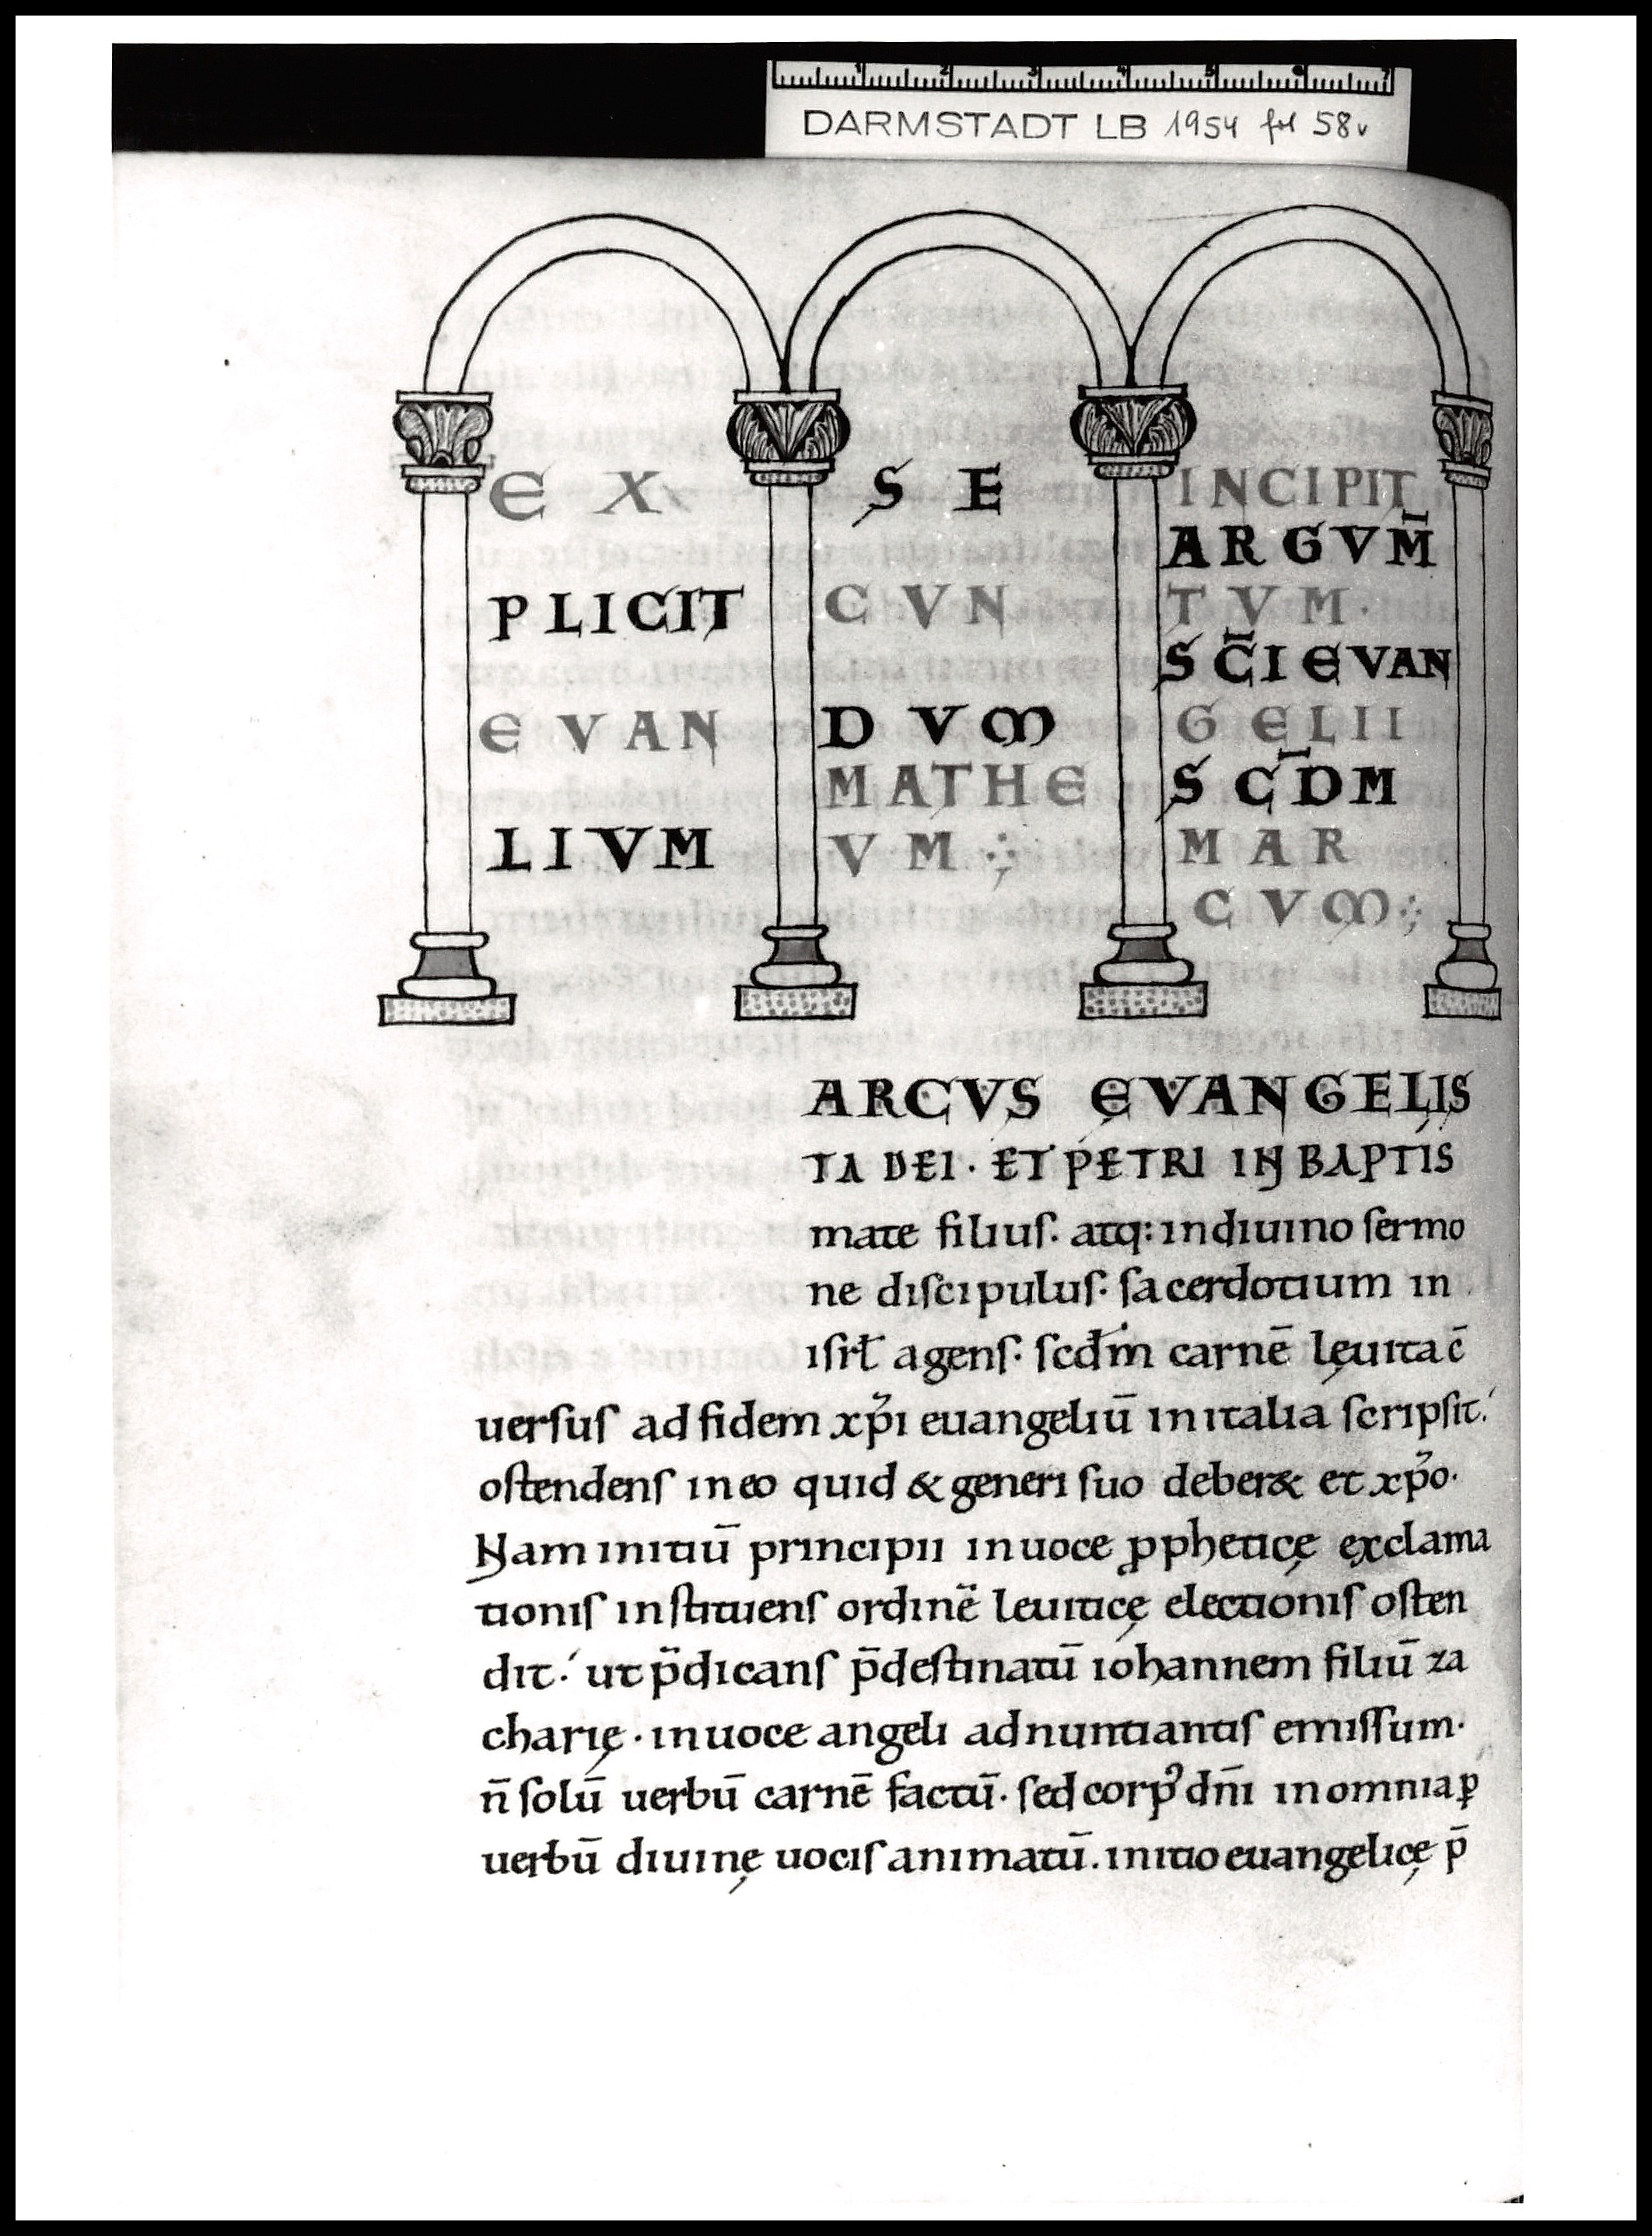 1 2 3 4 5 6 7
DARMSTADT LB 1954 fol 58v
EX
PLICIT
EVAN
LIVM
SE
CVN
DVM
MATHE
VM
INCIPIT
ARGVM̅
TVM·
SC̅I EVAN
GELII
SCD̅M
MAR
CVM
ARCVS EVANGELIS
TA DEI · ET PETRI IN BAPTIS
mate filiuſ· atq: indiuino ſermo
ne diſcipuluſ· ſacerdotium in
iſrł agenſ· ſcđm carnē lęuita c̄
uerſuſ ad fidem xp̄i euangeliū in italia ſcripſit·
oſtendenſ in eo quid & generi ſuo deber& et xp̄o·
Nam initiū principii inuoce ꝓpheticę exclama
tioniſ inſtituenſ ordinē leuiticę electioniſ oſten
dit· ut p̄dicanſ p̄deſtinatū iohannem filiū za
charię · inuoce angeli adnuntiantiſ emiſſum·
n̄ ſolū uerbū carnē factū· ſed corpꝰ dn̄i in omnia ꝑ
uerbū diuinę uociſ animatū. initio euangelicę p̄